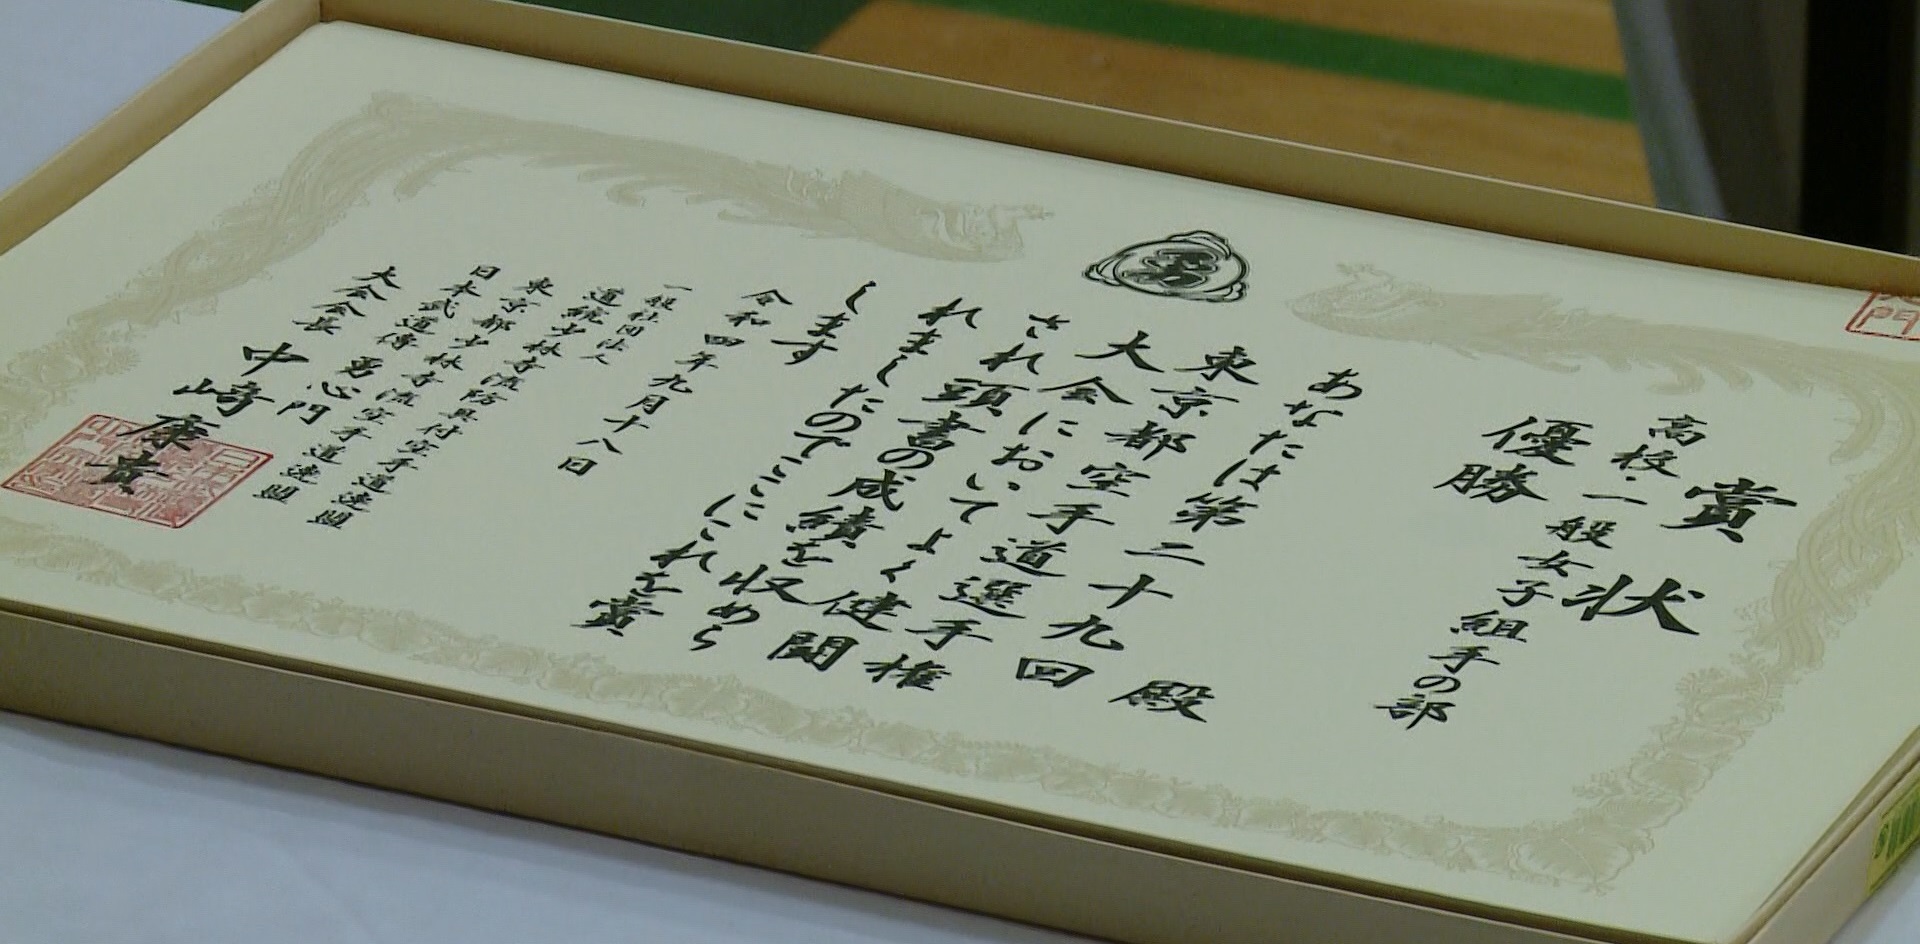 賞状
高校・一般女子組手の部
優勝
殿
あなたは第二十九回
東京都空手道選手権
大会においてよく健闘
され頭書の成績を収めら
れましたのでここにこれを賞
します
令和四年九月十八日
一般社団法人
道統少林寺流防具付空手道連盟
東京都少林寺流空手道連盟
日本武道傳 勇心門
大会会長 中﨑康貴